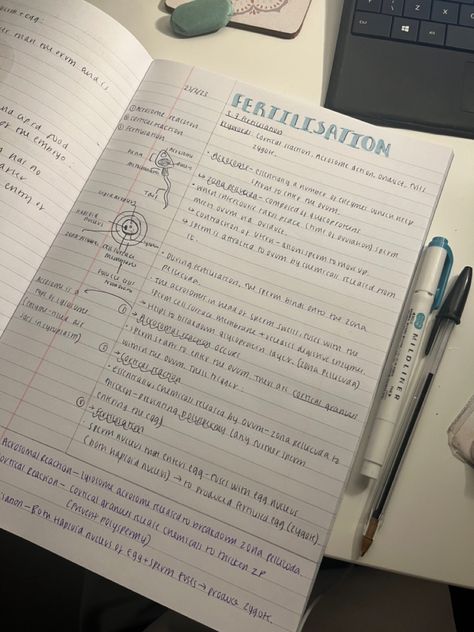 FERTILISATION
3.7 Fertilisation
Keywords: Cortical reaction, acrosome action, oviduct, fuses
zygote.
① Acrosome reaction
② cortical reaction
③ Fertilisation
Acrosome
Tail
• Acrosome - essentially a number of enzymes which help
sperm to enter the ovum.
↳ zona pellucida - composed of glycoprotein.
• when intercourse takes place (time of ovulation) sperm
meet ovum via oviduct.
↳ contraction of uterus - allows sperm to move up.
↳ sperm is attracted to ovum by chemicals released from
it.
• During fertilisation, the sperm binds onto the zona
pellucida.
The acrosomes in head of sperm swells, fuses with the
sperm cell surface membrane + releases digestive enzymes.
↳ helps to breakdown glycoprotein layer. (zona pellucida)
① ↳ Acrosomal reaction occurs
• sperm starts to enter the ovum. There are cortical granules
within the ovum. These trigger:
② ↳ cortical reaction
• essentially chemicals released by ovum - zona pellucida to
thicken - preventing polyspermy (any further sperm
entering the egg)
③ ↳ Fertilisation
• sperm nucleus that enters egg - fuses with egg nucleus
(both haploid nucleus) → to produced fertilised egg (zygote).
Acrosome is a
type of lysosome
Acrosomal reaction - lysosome acrosome released to breakdown zona pellucida.
Cortical reaction - cortical granules release chemicals to thicken ZP
(prevent polyspermy)
Both haploid nucleus of egg + sperm fuses → produce zygote.
MILDLINER